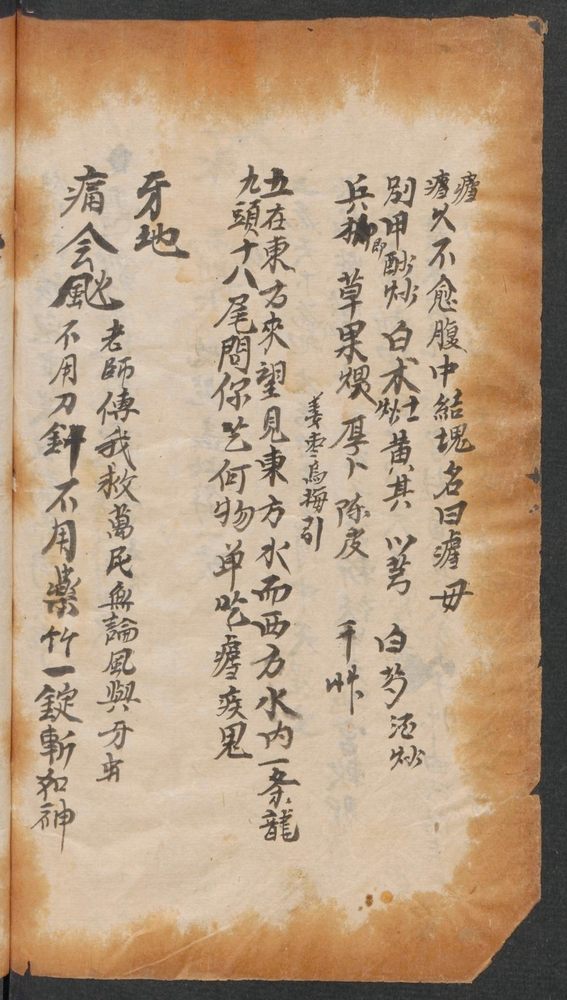 瘧
瘧久不愈腹中結塊名曰瘧毋
別甲酥炒 白术灶炒 黄其 川芎 白芍酒炒
兵柳即 草果煨 厚卜 陈皮 干艸
姜枣烏梅引
五在東方來望見東方水而西方水内一条龍
九頭十八尾問你吃何物单吃瘧疾鬼
牙地
老師傅我救萬民無論風與牙
痛会風 不用刀針不用藥竹一錠斬和神